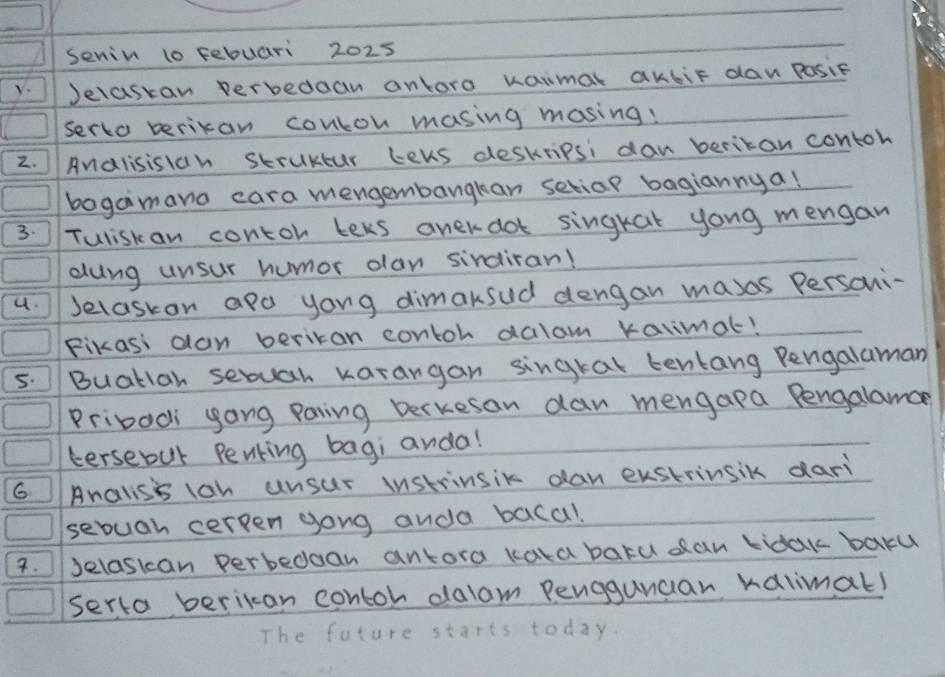 Senin 10 Febuari 2025
1. Jelaskan Perbedaan antara kalimat aktif dan Pasif
serta berikan contoh masing masing!
2. Analisislah struktur teks deskripsi dan berikan contoh
bagaimana cara mengembangkan setiap bagiannya!
3. Tuliskan contoh teks anekdot singkat yang mengan
dung unsur humor dan sindiran!
4. Jelaskan apa yang dimaksud dengan majas Personi-
Fikasi dan berikan contoh dalam kalimat!
5. Buatlah sebuah karangan singkat tentang Pengalaman
Pribadi yang Paling berkesan dan mengapa Pengalaman
tersebut Penting bagi anda!
6. Analisis lah unsur instrinsik dan ekstrinsik dari
sebuah cerpen yang anda baca!
7. Jelaskan Perbedaan antara kata baku dan tidak baku
serta berikan contoh dalam Penggunaan kalimat!
The future starts today.